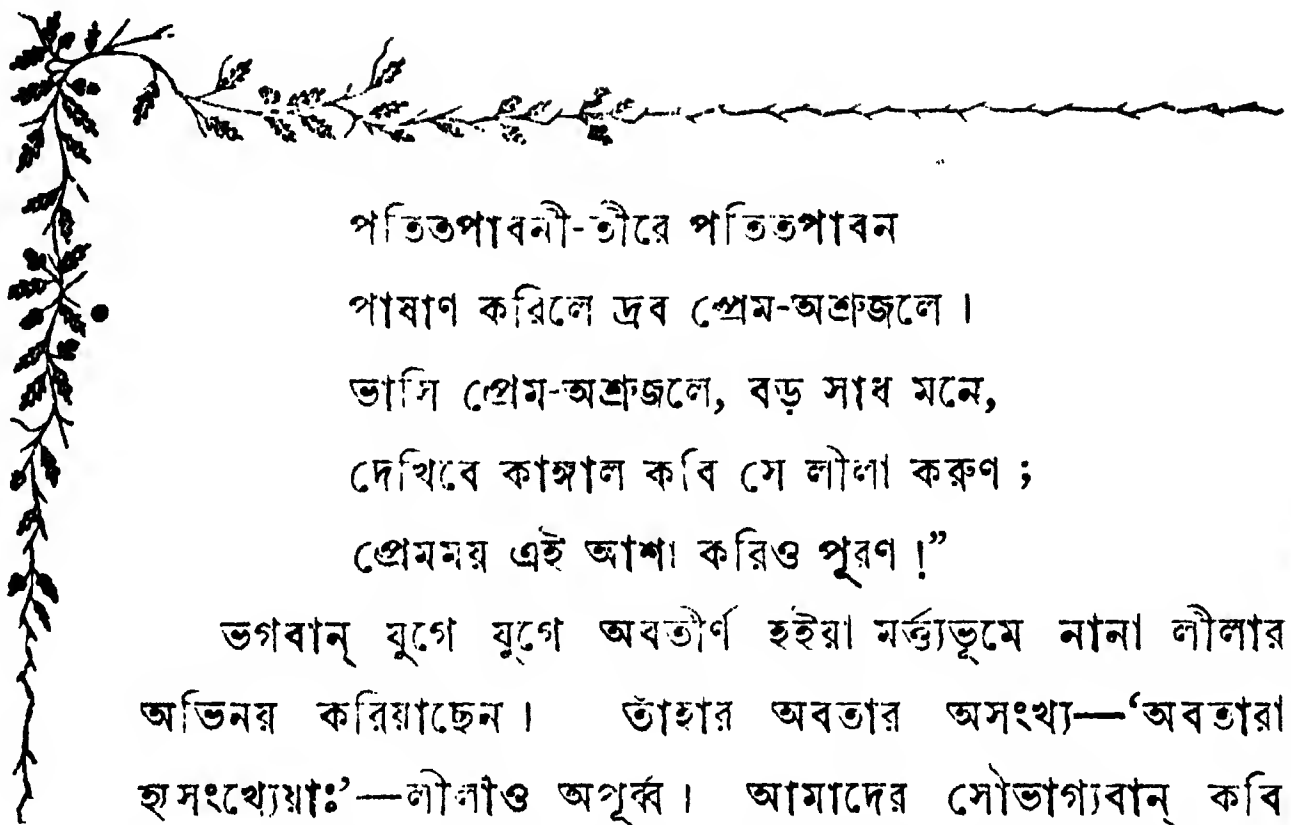 পতিতপাবনী-তীরে পতিতপাবন
পাষাণ করিলে দ্রব প্রেম-অশ্রুজলে।
ভাসি প্রেম-অশ্রুজলে, বড় সাধ মনে,
দেখিবে কাঙ্গাল কবি সে লীলা করুণ ;
প্রেমময় এই আশা করিও পূরণ !”
ভগবান্ যুগে যুগে অবতীর্ণ হইয়া মর্ত্ত্যভূমে নানা লীলার
অভিনয় করিয়াছেন। তাঁহার অবতার অসংখ্য—‘অবতারা
হ্যসংখ্যেয়াঃ’—লীলাও অপূর্ব্ব। আমাদের সৌভাগ্যবান্ কবি